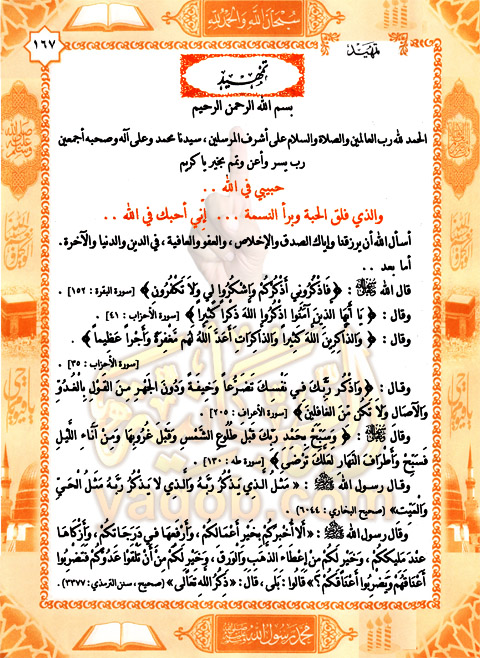 سبحان الله والحمد لله
١٦٧
تمهيد
تمهيد
بسم الله الرحمن الرحيم
الحمد لله رب العالمين والصلاة والسلام على أشرف المرسلين ، سيدنا محمد وعلى آله وصحبه أجمعين
رب يسر وأعن وتمم بخير يا كريم
حبيبي في الله ..
والذي فلق الحبة وبرأ النسمة ... إني أحبك في الله ..
أسأل الله أن يرزقنا وإياك الصدق والإخلاص ، والعفو والعافية ، في الدين والدنيا والآخرة .
أما بعد ..
قال الله ﷻ : ﴿ فَاذْكُرُونِي أَذْكُرْكُمْ وَاشْكُرُوا لِي وَلَا تَكْفُرُونِ ﴾ [سورة البقرة : ١٥٢] .
وقال : ﴿ يَا أَيُّهَا الَّذِينَ آمَنُوا اذْكُرُوا اللَّهَ ذِكْرًا كَثِيرًا ﴾ [سورة الأحزاب : ٤١] .
وقال : ﴿ وَالذَّاكِرِينَ اللَّهَ كَثِيرًا وَالذَّاكِرَاتِ أَعَدَّ اللَّهُ لَهُم مَّغْفِرَةً وَأَجْرًا عَظِيمًا ﴾
[سورة الأحزاب : ٣٥] .
وقال : ﴿ وَاذْكُر رَّبَّكَ فِي نَفْسِكَ تَضَرُّعًا وَخِيفَةً وَدُونَ الْجَهْرِ مِنَ الْقَوْلِ بِالْغُدُوِّ
وَالْآصَالِ وَلَا تَكُن مِّنَ الْغَافِلِينَ ﴾ [سورة الأعراف : ٢٠٥] .
وقال : ﴿ وَسَبِّحْ بِحَمْدِ رَبِّكَ قَبْلَ طُلُوعِ الشَّمْسِ وَقَبْلَ غُرُوبِهَا وَمِنْ آنَاءِ اللَّيْلِ
فَسَبِّحْ وَأَطْرَافَ النَّهَارِ لَعَلَّكَ تَرْضَى ﴾ [سورة طه : ١٣٠] .
وقال رسول الله ﷺ : « مَثَلُ الَّذِي يَذْكُرُ رَبَّهُ وَالَّذِي لَا يَذْكُرُ رَبَّهُ مَثَلُ الْحَيِّ
وَالْمَيِّتِ » (صحيح البخاري : ٦٠٤٤) .
وقال رسول الله ﷺ : « أَلَا أُخْبِرُكُمْ بِخَيْرِ أَعْمَالِكُمْ ، وَأَرْفَعِهَا فِي دَرَجَاتِكُمْ ، وَأَزْكَاهَا
عِنْدَ مَلِيكِكُمْ ، وَخَيْرٍ لَكُمْ مِنْ إِعْطَاءِ الذَّهَبِ وَالْوَرِقِ ، وَخَيْرٍ لَكُمْ مِنْ أَنْ تَلْقَوْا عَدُوَّكُمْ فَتَضْرِبُوا
أَعْنَاقَهُمْ وَيَضْرِبُوا أَعْنَاقَكُمْ ؟» قَالُوا : بَلَى ، قَالَ : « ذِكْرُ اللَّهِ تَعَالَى » (صحيح ، سنن الترمذي : ٣٣٧٧) .
yaqob.com
محمد رسول الله